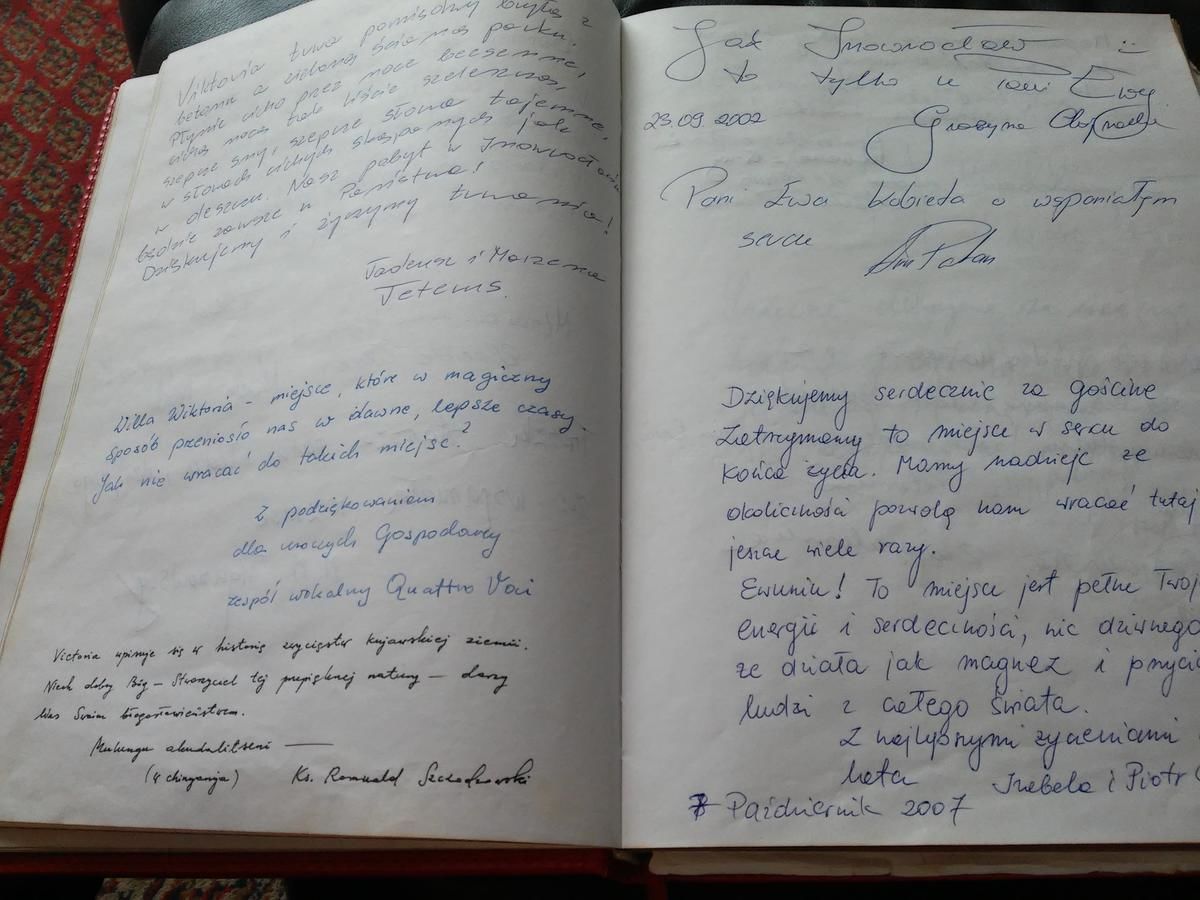 Viktoria trwa pomiędzy bryłą z
betonu a zieloną ścianą parku.
Płynie cicho przez noce bezsenne,
cichą nocą tak liście szeleszczą,
szepcze sny, szepcze słowa tajemne,
w słowach cichych skąpanych jak
w deszczu. Nasz pobyt w Inowrocławiu
będzie zawsze u Państwa!
Dziękujemy i życzymy trwania!
Tadeusz i Marzena
Tetems.
Willa Wiktoria - miejsce, które w magiczny
sposób przeniosło nas w dawne, lepsze czasy.
Jak nie wracać do takich miejsc?
Z podziękowaniem
dla uroczych Gospodarzy
zespół wokalny Quattro Voci
Victoria wpisuje się w historię zwycięstw kujawskiej ziemi.
Niech dobry Bóg - Stworzyciel tej przepięknej natury - darzy
Was Swoim błogosławieństwem.
Mulungu akudalitseni
(w chinyanja) Ks. Romuald Szczodrowski
Jak Inowrocław :)
to tylko u Pani Ewy
23.09.2002 Grażyna
Pani Ewa kobieta o wspaniałym
sercu
Dziękujemy serdecznie za gościnę
Zatrzymamy to miejsce w sercu do
końca życia. Mamy nadzieję że
okoliczności pozwolą nam wracać tutaj
jeszcze wiele razy.
Ewuniu! To miejsce jest pełne Twojej
energii i serdeczności, nic dziwnego
że działa jak magnez i przycią
ludzi z całego świata.
Z najlepszymi życzeniami
Izabela i Piotr
Październik 2007